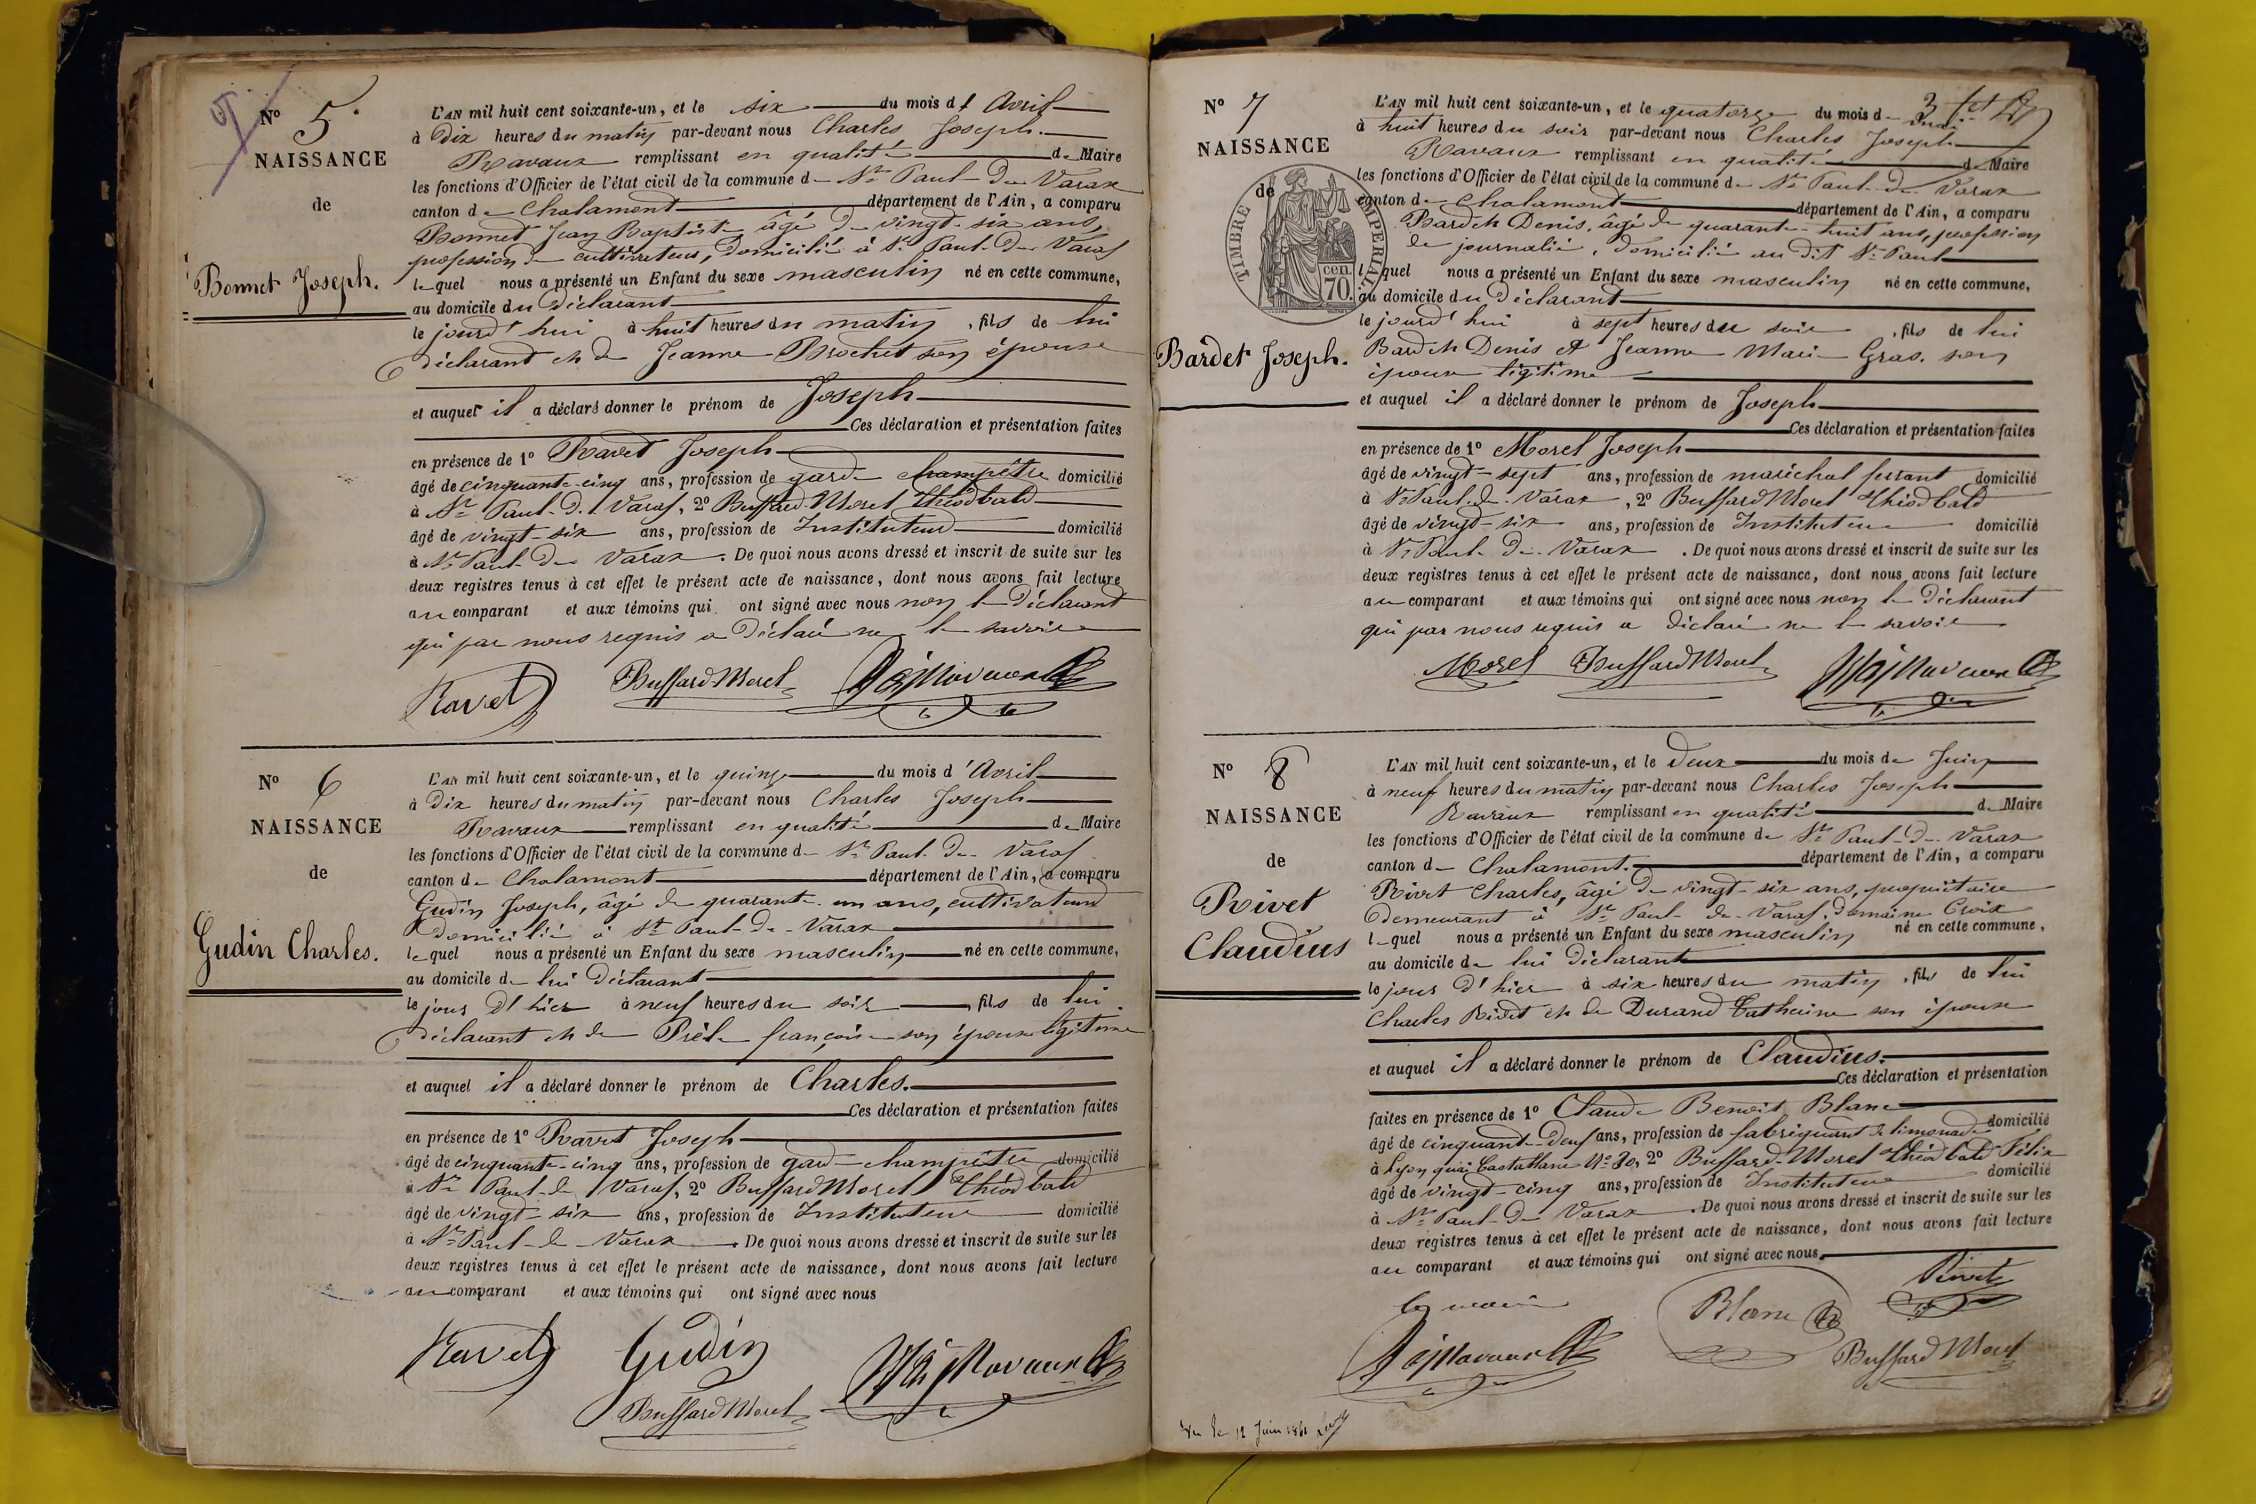 5
Nº 5.
NAISSANCE
de
Bonnet Joseph.
L'AN mil huit cent soixante-un, et le six du mois d' Avril
à Dix heures du matin par-devant nous Charles Joseph
Ravaux remplissant en qualité de Maire
les fonctions d'Officier de l'état civil de la commune de St Paul-de Varax
canton de Chalamont département de l'Ain, a comparu
Bonnet Jean Baptiste âgé de vingt-six ans,
profession de cultivateur, domicilié à St Paul-de-Varax
lequel nous a présenté un Enfant du sexe masculin né en cette commune,
au domicile du Déclarant
le jourd'hui à huit heures du matin, fils de lui
déclarant et de Jeanne Brochet son épouse
et auquel il a déclaré donner le prénom de Joseph
Ces déclaration et présentation faites
en présence de 1º Ravet Joseph
âgé de cinquante-cinq ans, profession de garde champêtre domicilié
à St Paul-de Varax, 2º Buffard-Morel Théodbald
âgé de vingt-six ans, profession de Instituteur domicilié
à St Paul-de Varax. De quoi nous avons dressé et inscrit de suite sur les
deux registres tenus à cet effet le présent acte de naissance, dont nous avons fait lecture
au comparant et aux témoins qui ont signé avec nous non le Déclarant
qui par nous requis a Déclaré ne le savoir
Ravet Buffard Morel Ravaux
Nº 6
NAISSANCE
de
Gudin Charles.
L'AN mil huit cent soixante-un, et le quinze du mois d'Avril
à Dix heures du matin par-devant nous Charles Joseph
Ravaux remplissant en qualité de Maire
les fonctions d'Officier de l'état civil de la commune de St Paul-de-Varax
canton de Chalamont département de l'Ain, a comparu
Gudin Joseph, âgé de quarante-un ans, cultivateur
domicilié à St Paul-de-Varax
lequel nous a présenté un Enfant du sexe masculin né en cette commune,
au domicile de lui Déclarant
le jour d'hier à neuf heures du soir, fils de lui
déclarant et de Prêle françoise son épouse légitime
et auquel il a déclaré donner le prénom de Charles.
Ces déclaration et présentation faites
en présence de 1º Ravet Joseph
âgé de cinquante-cinq ans, profession de garde-champêtre domicilié
à St Paul-de Varax, 2º Buffard Morel Théodbald
âgé de vingt-six ans, profession de Instituteur domicilié
à St Paul-de-Varax. De quoi nous avons dressé et inscrit de suite sur les
deux registres tenus à cet effet le présent acte de naissance, dont nous avons fait lecture
au comparant et aux témoins qui ont signé avec nous
Ravet Gudin Ravaux
Buffard Morel
Nº 7
NAISSANCE
de
TIMBRE IMPERIAL
70 cen.
Bardet Joseph.
L'AN mil huit cent soixante-un, et le quatorze du mois de mai
à huit heures du soir par-devant nous Charles Joseph
Ravaux remplissant en qualité de Maire
les fonctions d'Officier de l'état civil de la commune de St Paul-de-Varax
canton de Chalamont département de l'Ain, a comparu
Bardet Denis, âgé de quarante-huit ans, profession
de journalier, domicilié au dit St Paul
lequel nous a présenté un Enfant du sexe masculin né en cette commune,
au domicile du Déclarant
le jourd'hui à sept heures du soir, fils de lui
Bardet Denis et Jeanne Marie Gras. son
épouse légitime
et auquel il a déclaré donner le prénom de Joseph
Ces déclaration et présentation faites
en présence de 1º Morel Joseph
âgé de vingt-sept ans, profession de maréchal ferrant domicilié
à St Paul-de-Varax, 2º Buffard Morel Théodbald
âgé de vingt-six ans, profession de Instituteur domicilié
à St Paul-de-Varax. De quoi nous avons dressé et inscrit de suite sur les
deux registres tenus à cet effet le présent acte de naissance, dont nous avons fait lecture
au comparant et aux témoins qui ont signé avec nous non le Déclarant
qui par nous requis a déclaré ne le savoir
Morel Buffard Morel Ravaux
Nº 8
NAISSANCE
de
Rivet
Claudius
L'AN mil huit cent soixante-un, et le Deux du mois de Juin
à neuf heures du matin par-devant nous Charles Joseph
Ravaux remplissant en qualité de Maire
les fonctions d'Officier de l'état civil de la commune de St Paul-de-Varax
canton de Chalamont. département de l'Ain, a comparu
Rivet Charles, âgé de vingt-six ans, propriétaire
Demeurant à St Paul-de-Varax, domaine Croix
lequel nous a présenté un Enfant du sexe masculin né en cette commune,
au domicile de lui Déclarant
le jour d'hier à six heures du matin, fils de lui
Charles Rivet et de Durand Catherine son épouse
et auquel il a déclaré donner le prénom de Claudius.
Ces déclaration et présentation
faites en présence de 1º Claude Benoit Blanc
âgé de cinquante-deux ans, profession de fabriquant de limonade domicilié
à Lyon quai Castellane Nº 20, 2º Buffard-Morel Théodbald Félix
âgé de vingt-cinq ans, profession de Instituteur domicilié
à St Paul-de Varax. De quoi nous avons dressé et inscrit de suite sur les
deux registres tenus à cet effet le présent acte de naissance, dont nous avons fait lecture
au comparant et aux témoins qui ont signé avec nous.
le maire Blanc Rivet
Ravaux Buffard Morel
Vu le 12 Juin 1861